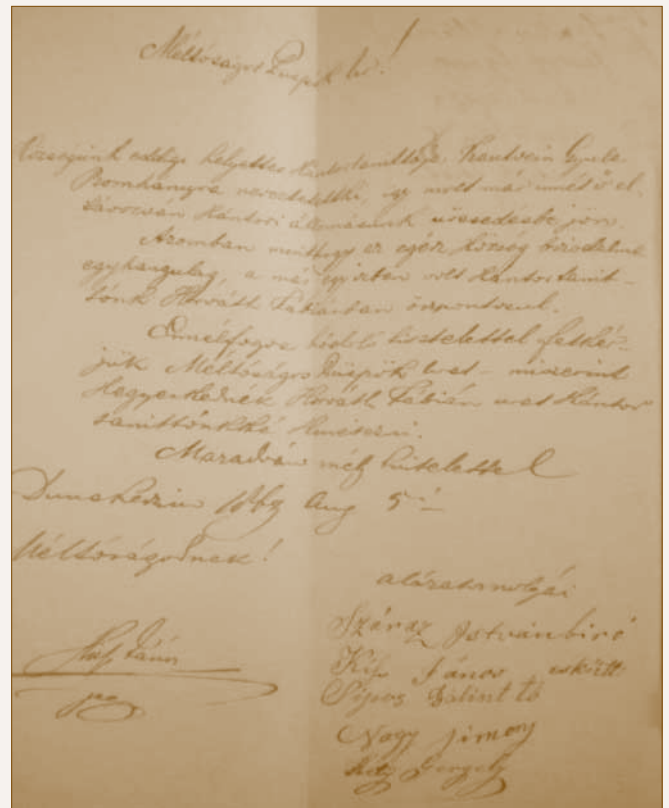 Méltóságos Püspök Ur!
Községünk eddigi helyettes Kántortanitója, Gyula
Romhányra neveztetett ki, így most már innét ő el
távozván Kántori állomásunk üresedésbe jön.
Azomban minthogy az egész község bizodalma
egyhangulag, a már egyízben volt Kántor tanit-
tónk Horváth Fábiánban öszpontosul.
Ennélfogva hódoló tisztelettel felkér-
jük Méltóságos Püspök Urat – miszerint
kegyeskednék Horváth Fábián urat Kántor
tanittónkká kinevezni.
Maradván mély tisztelettel
Aug 5
Méltóságodnak!
alázatos szolgái
Száraz István biró
Kiss János eskütt
Sipos Bálint tö
Nagy Simon
Gergely